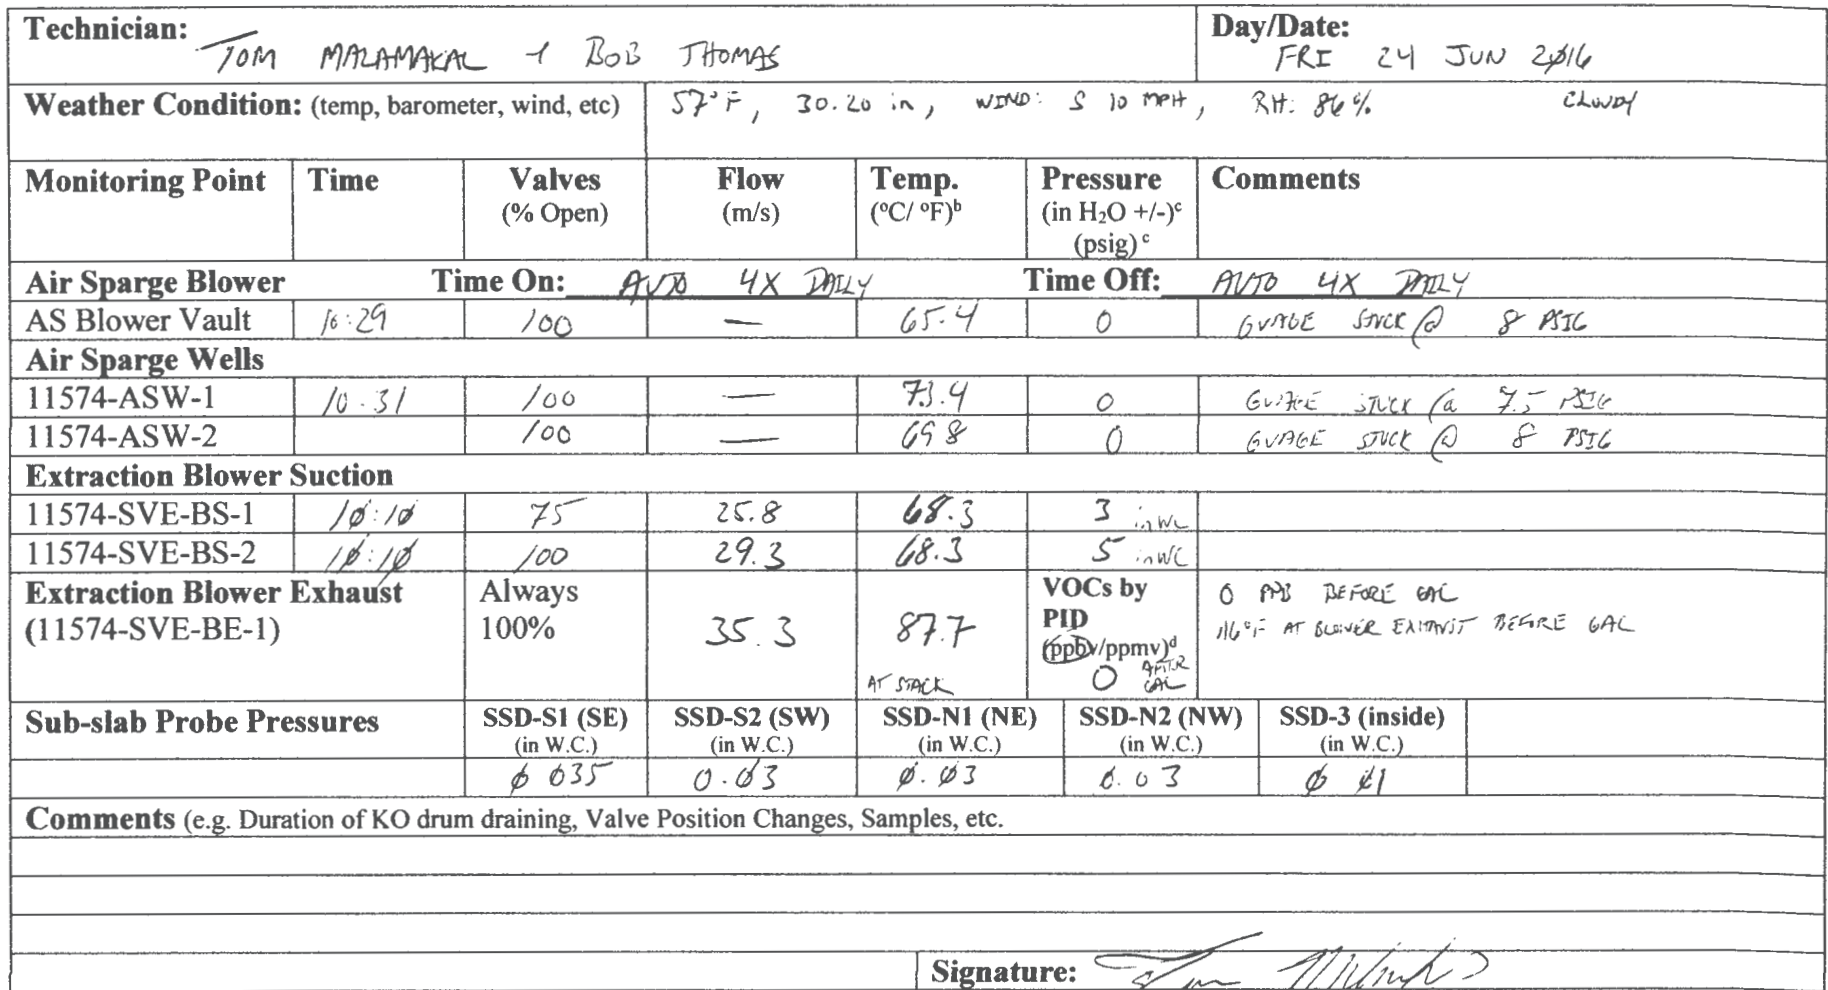 Technician: TOM MALAMAKAL & BOB THOMAS Day/Date: FRI 24 JUN 2016
Weather Condition: (temp, barometer, wind, etc) 57°F, 30.20 in, WIND: S 10 MPH, RH: 86% CLOUDY
Monitoring Point Time Valves Flow Temp. Pressure Comments
(% Open) (m/s) (ºC/ ºF)ᵇ (in H₂O +/-)ᶜ
(psig) ᶜ
Air Sparge Blower Time On: AUTO 4X DAILY Time Off: AUTO 4X DAILY
AS Blower Vault 10:29 100 — 65.4 0 GUAGE STUCK @ 8 PSIG
Air Sparge Wells
11574-ASW-1 10:31 100 — 73.4 0 GUAGE STUCK @ 7.5 PSIG
11574-ASW-2 100 — 69.8 0 GUAGE STUCK @ 8 PSIG
Extraction Blower Suction
11574-SVE-BS-1 10:10 75 25.8 68.3 3 inWC
11574-SVE-BS-2 10:10 100 29.3 68.3 5 inWC
Extraction Blower Exhaust Always VOCs by 0 PPB BEFORE GAC
(11574-SVE-BE-1) 100% 35.3 87.7 PID 116°F AT BLOWER EXHAUST BEFORE GAC
(ppbv/ppmv)ᵈ
AT STACK 0 AFTER GAC
Sub-slab Probe Pressures SSD-S1 (SE) SSD-S2 (SW) SSD-N1 (NE) SSD-N2 (NW) SSD-3 (inside)
(in W.C.) (in W.C.) (in W.C.) (in W.C.) (in W.C.)
0 035 0.03 0.03 0.03 0 01
Comments (e.g. Duration of KO drum draining, Valve Position Changes, Samples, etc.
Signature: